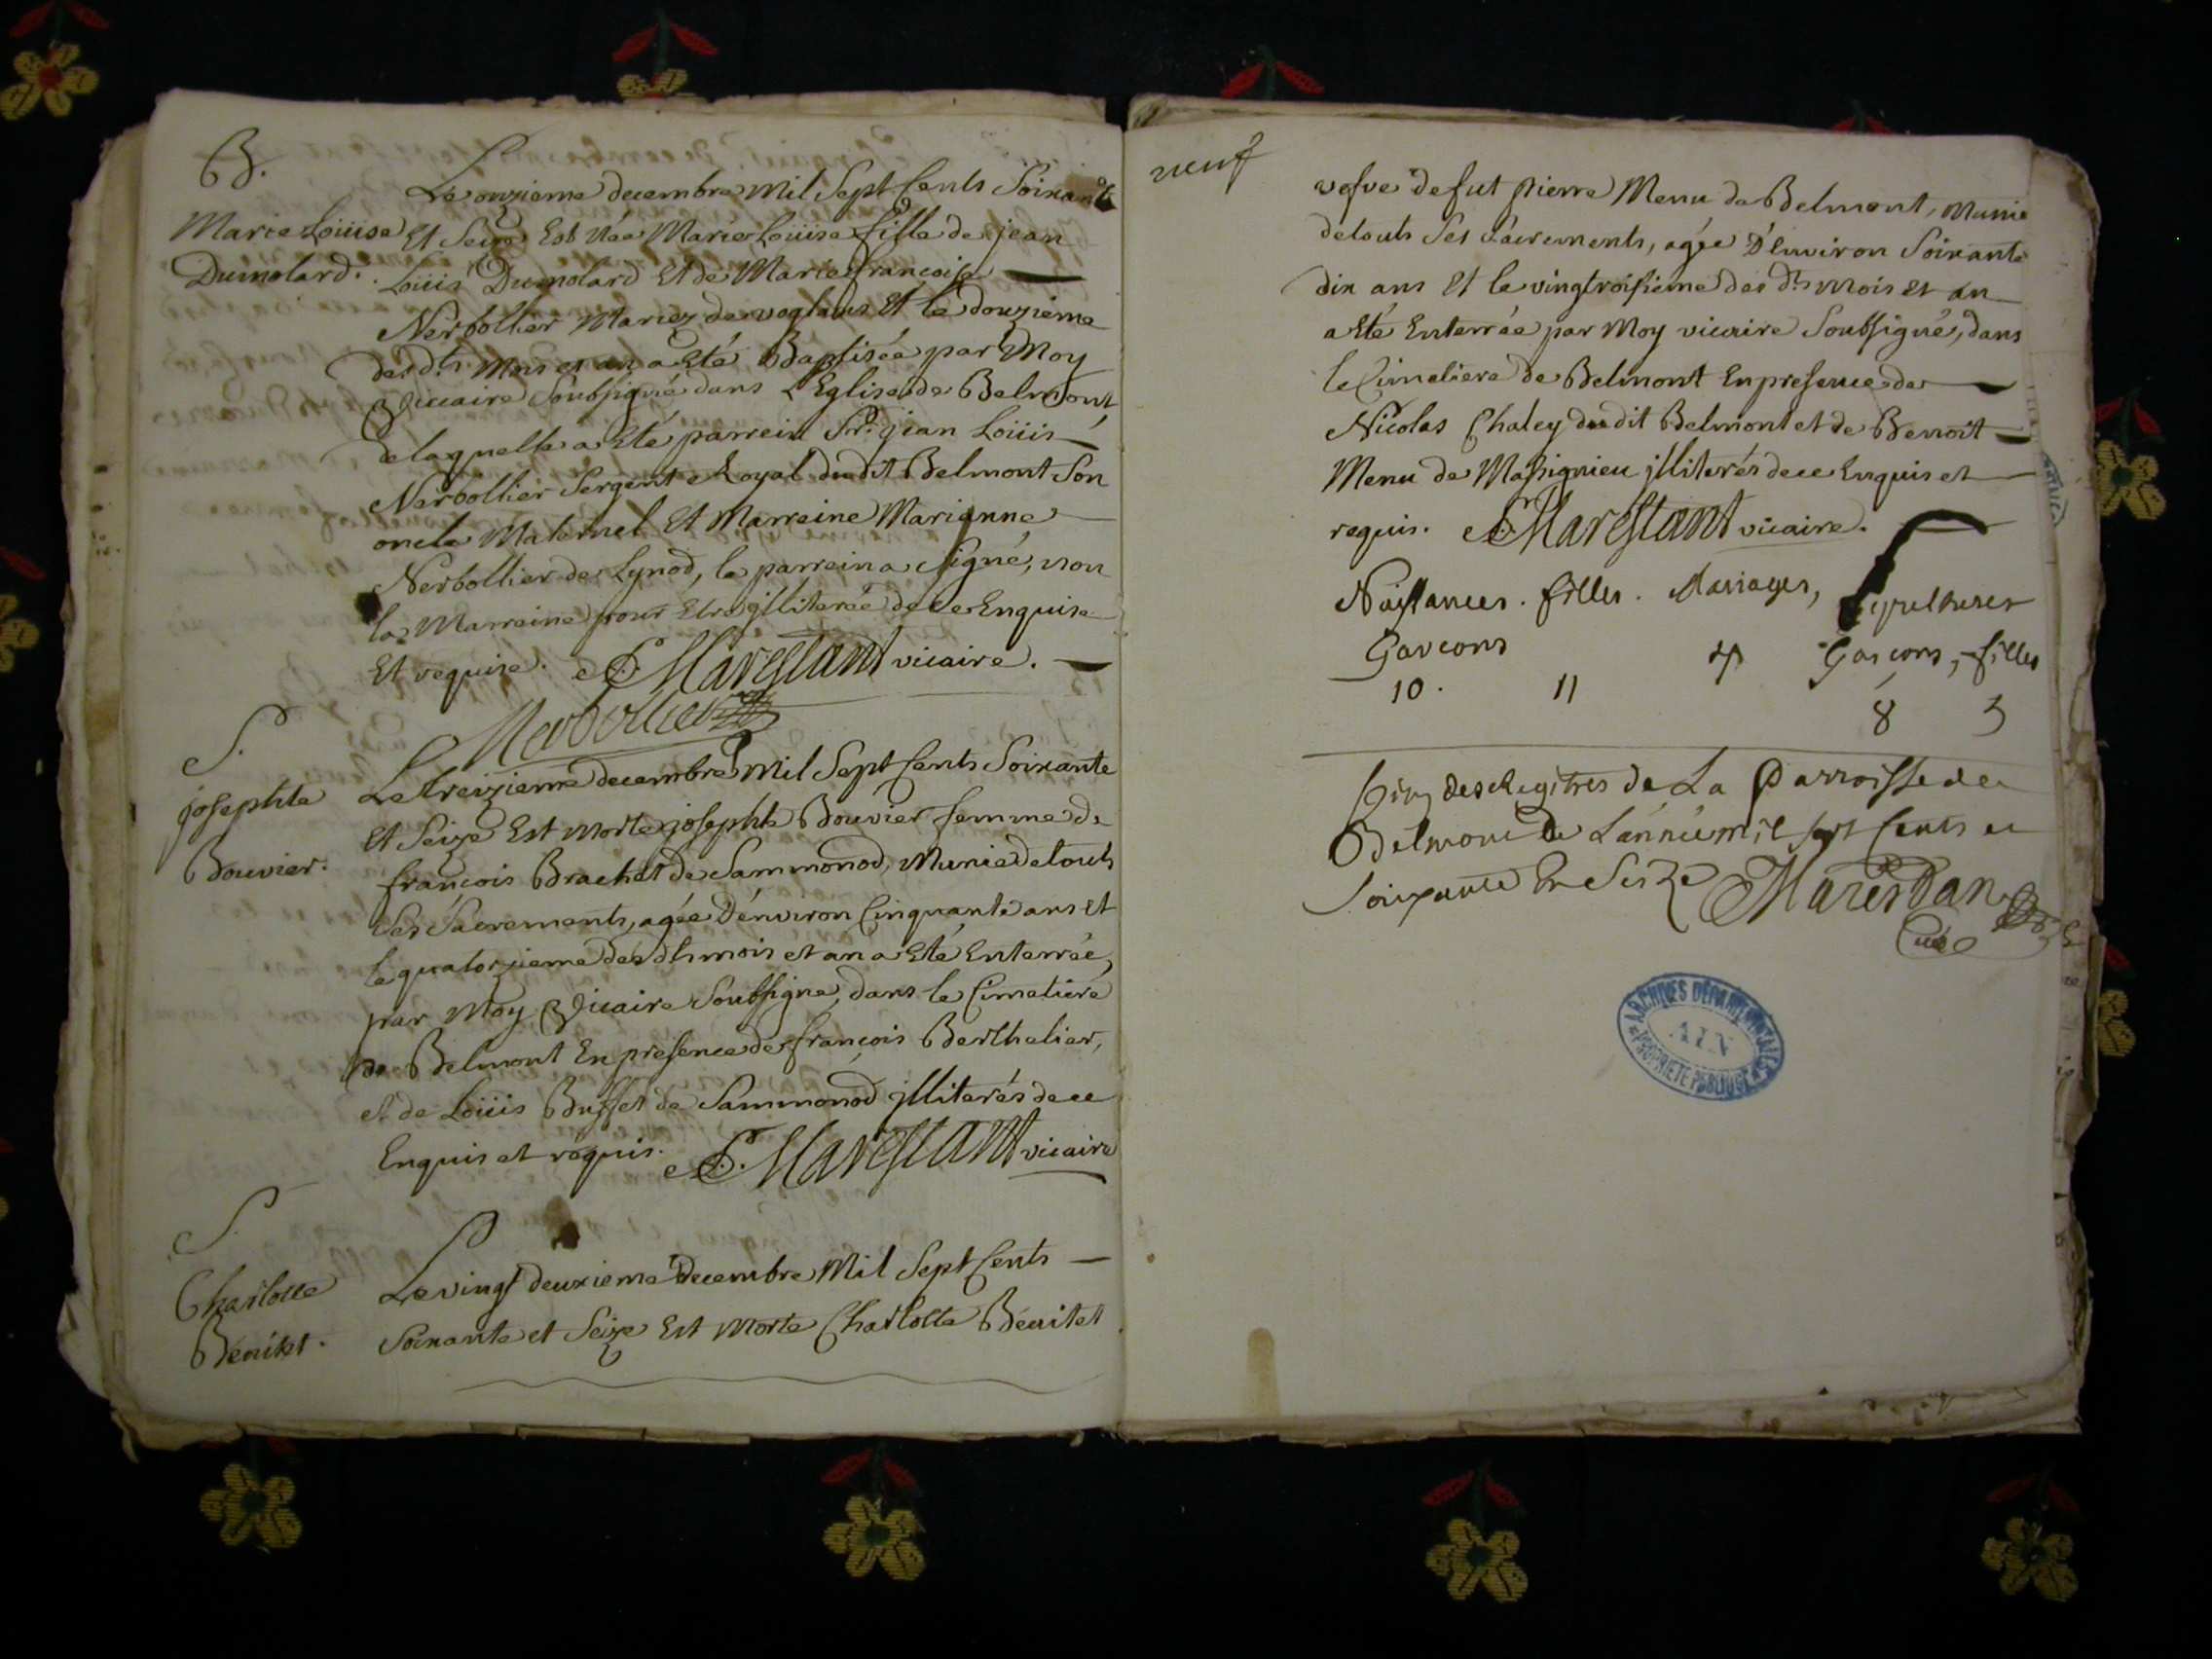 B.
Marie Loüise
Dumolard.
Le onzieme decembre Mil Sept Cents Soixante
Et Seize Est Née Marie Loüise fille de jean
Loüis Dumolard Et de Marie francoise
Nerbollier Mariez de voglans Et le douzieme
des dts Mois et an a Eté Baptisée par Moy
Vicaire Soubsigné dans L'Eglise de Belmont,
de laquelle a Eté parrein Sr. jean Loüis
Nerbollier Sergent Royal dudit Belmont Son
oncle Maternel Et Marreine Marianne
Nerbollier de Lynod, le parrein a Signé, non
la Marreine pour Etre jlliterée de ce Enquise
Et requise. Marestant vicaire.
Nerbollier
S.
josephte
Bouvier.
Le treizieme decembre Mil Sept Cents Soixante
Et Seize Est Morte josephte Bouvier femme de
francois Brachet de Sammonod, Munie de touts
Ses Sacrements, agée D'environ Cinquante ans et
le quatorzieme des dts mois et an a Eté Enterrée,
par Moy Vicaire Soubsigné, dans le Cimetiere
de Belmont En presence de françois Berthelier,
et de Loüis Buffet de Sammonod jlliterés de ce
Enquis et requis. Marestant vicaire
S.
Charlotte
Bénitet.
Le vingt deuxieme Decembre Mil Sept Cents
Soixante et Seize Est Morte Charlotte Bénitet
neuf
vefve de fut pierre Menu de Belmont, Munie
de touts Ses Sacrements, agée D'Environ Soixante
dix ans Et le vingtroisieme des dts mois et an
a Eté Enterrée par Moy vicaire Soubsigné, dans
le Cimetiere de Belmont En presence de
Nicolas Chaley dudit Belmont et de Benoît
Menu de Massignieu jlliterés de ce Enquis et
requis. Marestant vicaire.
Naissances. filles. Mariages, Sepultures
Garcons Garcons, filles
10. 11 8 3
fin des Regitres de La Parroisse de
Belmont De L'année mil sept Cents et
Soixante Et Seize Marestan
Curé
ARCHIVES DÉPARTEMENTALES
AIN
PROPRIÉTÉ PUBLIQUE